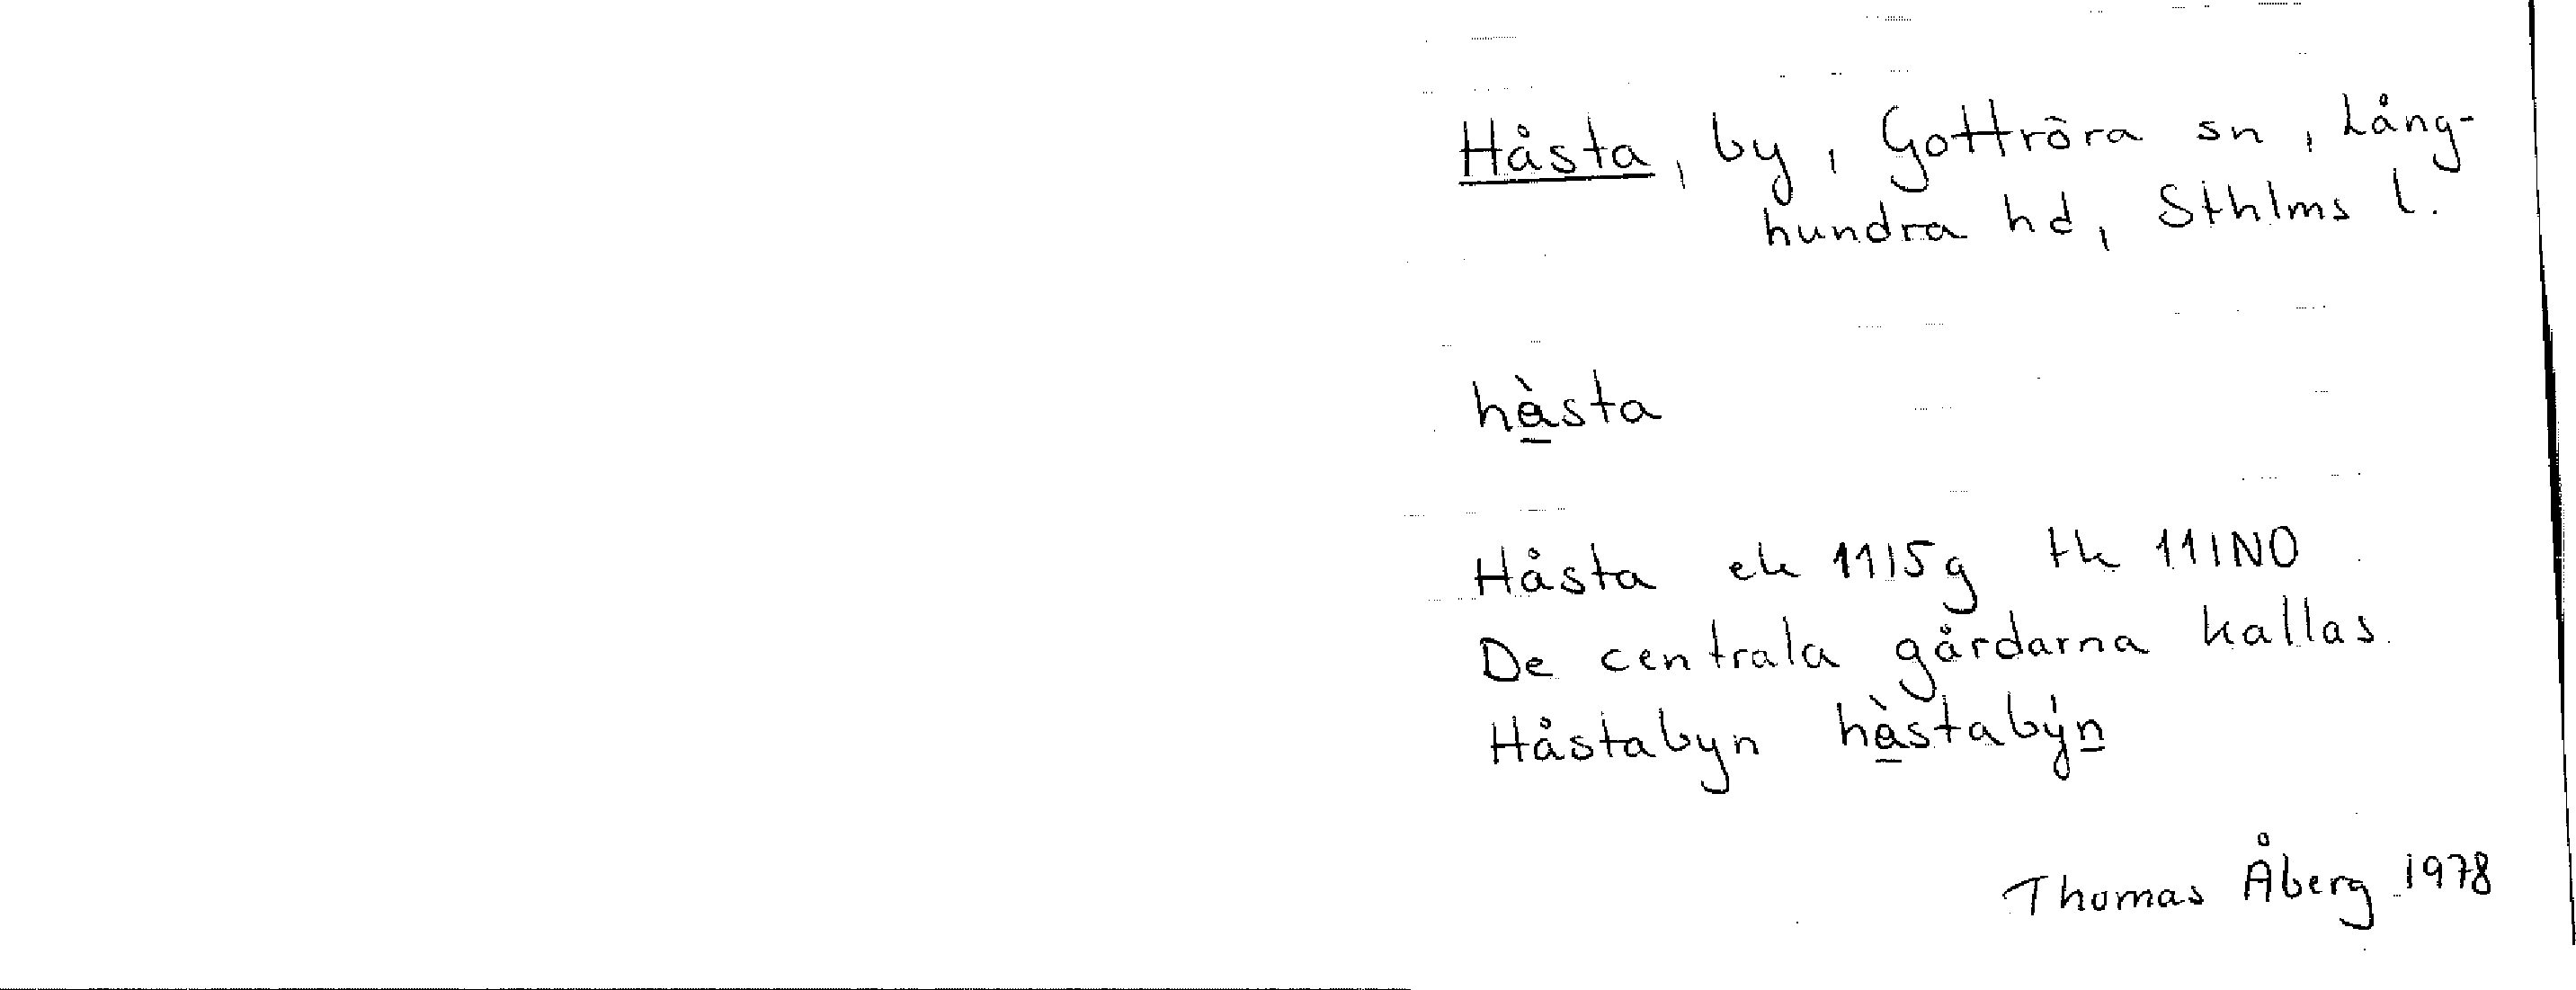 Håsta, by, Gottröra sn, Lång-
hundra hd, Sthlms l.
hà̱sta
Håsta ek 11I5g tk 11INO
De centrala gårdarna kallas
Håstabyn hà̱stabýṉ
Thomas Åberg 1978